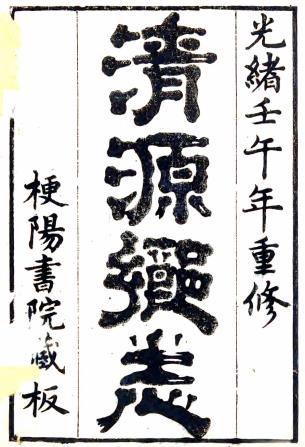 光緒壬午年重修
清源鄉志
梗陽書院藏板